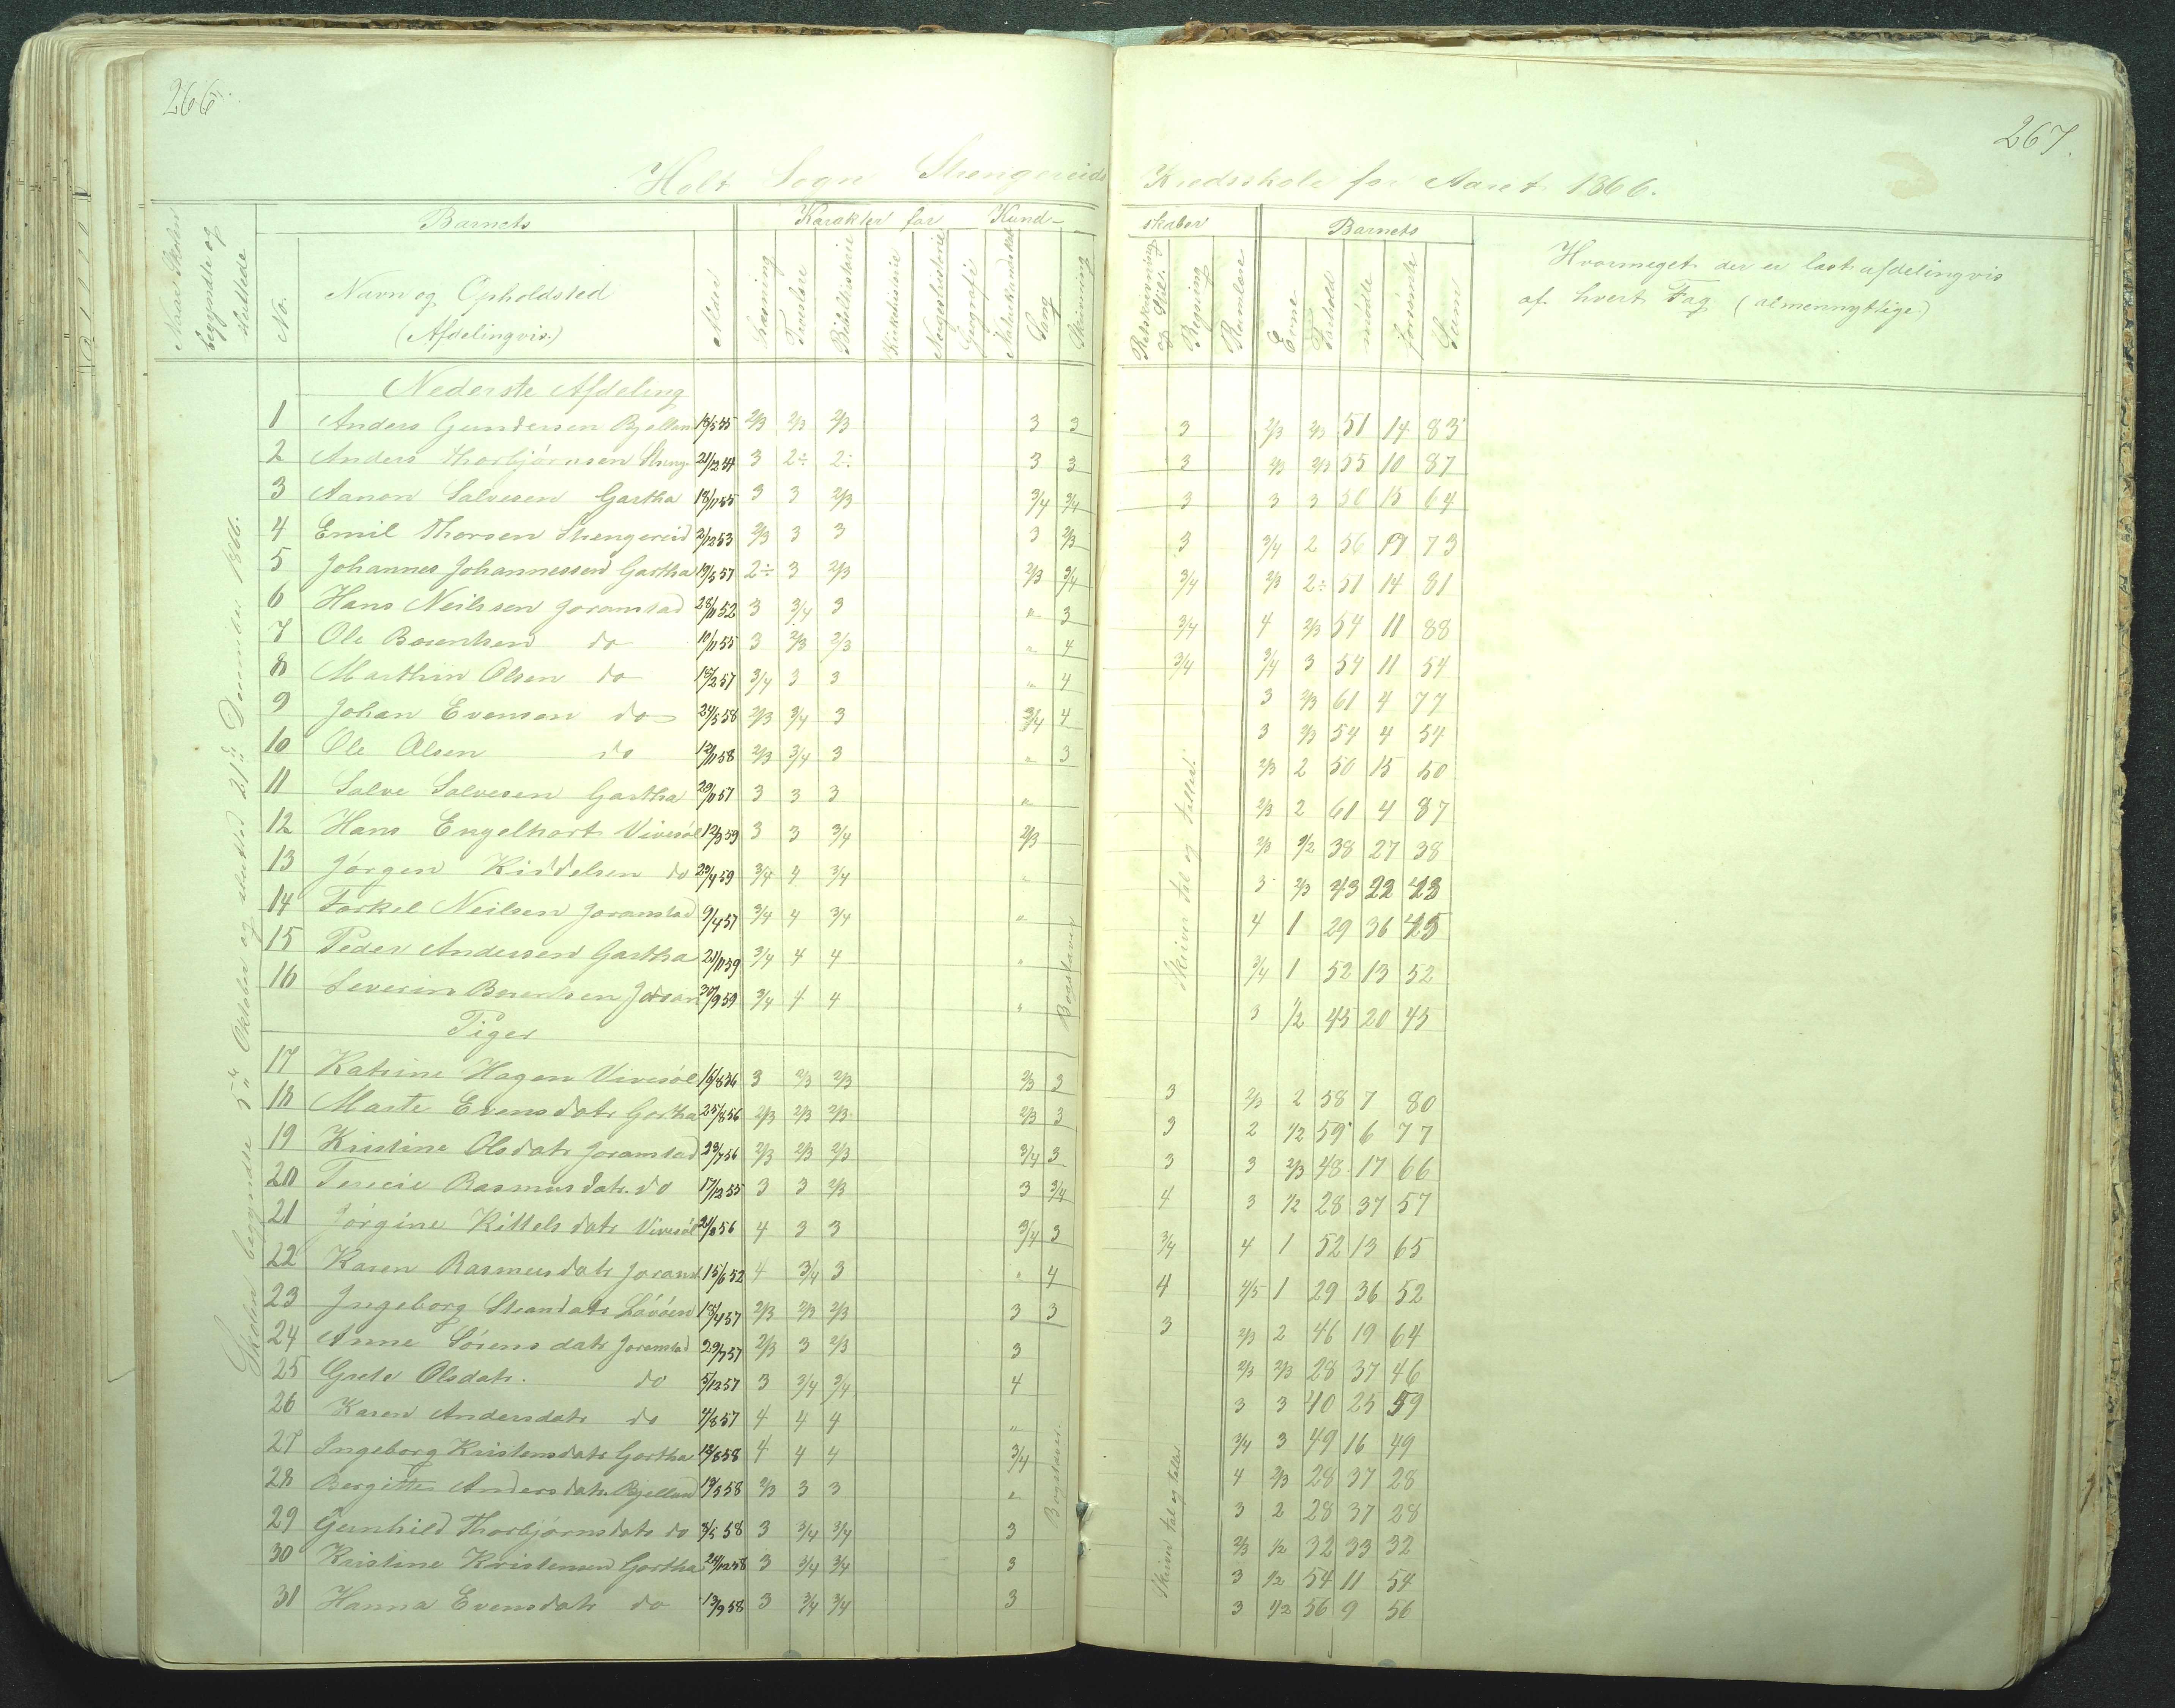 266.
267.
Holt Sogn Stengereids Kredsskole for Aaret 1866.
Naar Skolen begyndte og sluttede
No.
Barnets
Navn og Opholdsted
(Afdelingvis.)
Alder
Karakter for Kund-
skaber
Læsning
Troeslære
Bibelhistorie
Kirkehistorie
Norgeshistorie
Geografi
Naturkundskab
Sang
Skrivning
Retskrivning og Stil.
Regning
Rumlære
Barnets
Evne
Forhold
mødte
forsømte
Sum
Hvormeget der er læst afdelingvis
af hvert Fag (almennyttige)
Skolen begyndte 5te Oktober og sluttet 21de December 1866.
Nederste Afdeling
1 Anders Gundersen Bjelland 18/5 55 2/3 2/3 2/3 3 3 3 2/3 2/3 51 14 83
2 Anders Thorbjørnsen Steng. 21/12 54 3 2÷ 2÷ 3 3 3 2/3 2/3 55 10 87
3 Aanon Salvesen Gartha 18/11 55 3 3 2/3 3/4 3/4 3 3 3 50 15 64
4 Emil Thorsen Stengereid 2/12 53 2/3 3 3 3 2/3 3 3/4 2 56 17 73
5 Johannes Johannessen Gartha 19/5 57 2÷ 3 2/3 2/3 3/4 3/4 2/3 2÷ 51 14 81
6 Hans Neilssen Joramstad 28/11 52 3 3/4 3 " 3 3/4 4 2/3 54 11 88
7 Ole Berentsen do 10/11 55 3 2/3 2/3 " 4 3/4 3/4 3 54 11 54
8 Marthin Olsen do 15/2 57 3/4 3 3 " 4 3 2/3 61 4 77
9 Johan Evensen do 24/5 58 2/3 3/4 3 3/4 4 3 2/3 54 4 54
10 Ole Olsen do 12/11 58 2/3 3/4 3 " 3 2/3 2 50 15 50
11 Salve Salvesen Gartha 29/11 57 3 3 3 " 2/3 2 61 4 87
12 Hans Engelhart Vivesøl 12/3 59 3 3 3/4 2/3 2/3 1/2 38 27 38
13 Jørgen Kiddelsen do 29/4 59 3/4 4 3/4 " 3 2/3 43 22 43
14 Torkel Neilsen Joramstad 9/4 57 3/4 4 3/4 " 4 1 29 36 45
15 Peder Andersen Gartha 21/11 59 3/4 4 4 " 3/4 1 52 13 52
16 Severin Berentsen Joram 30/9 59 3/4 4 4 " 3 1/2 45 20 45
Bogstaver
Skrevn tal og teller.
Piger
17 Katrine Hagen Vivesøl 16/8 56 3 2/3 2/3 2/3 3 3 2/3 2 58 7 80
18 Marte Evensdatr Gartha 25/8 56 2/3 2/3 2/3 2/3 3 3 2 1/2 59 6 77
19 Kristine Olsdatr Joramstad 23/7 56 2/3 2/3 2/3 3/4 3 3 3 2/3 48 17 66
20 Terecie Rasmusdatr. do 17/12 55 3 3 2/3 3 3/4 4 3 1/2 28 37 57
21 Jørgine Kittelsdatr Vivesøl 21/8 56 4 3 3 3/4 3 3/4 4 1 52 13 65
22 Karen Rasmusdatr Joramst 15/6 52 4 3/4 3 " 4 4 4/5 1 29 36 52
23 Ingeborg Steandatr Løvåsen 18/4 57 2/3 2/3 2/3 3 3 3 2/3 2 46 19 64
24 Anne Sørensdatr Joramstad 29/7 57 2/3 3 2/3 3 2/3 2/3 28 37 46
25 Grete Olsdatr. do 5/12 57 3 3/4 3/4 4 3 3 40 25 59
26 Karen Andersdatr do 4/8 57 4 4 4 " 3/4 3 49 16 49
27 Ingeborg Kristensdatr Gartha 12/8 58 4 4 4 3/4 4 2/3 28 37 28
28 Bergitte Andersdatr. Bjelland 19/5 58 2/3 3 3 " 3 2 28 37 28
29 Gunhild Thorbjørnsdatr do 3/5 58 3 3/4 3/4 3 2/3 1/2 32 33 32
30 Kristine Kristensen Gartha 24/12 58 3 3/4 3/4 3 3 1/2 54 11 54
31 Hanna Evensdatr do 13/9 58 3 3/4 3/4 3 3 1/2 56 9 56
Bogstaver.
Skrevn tal og teller